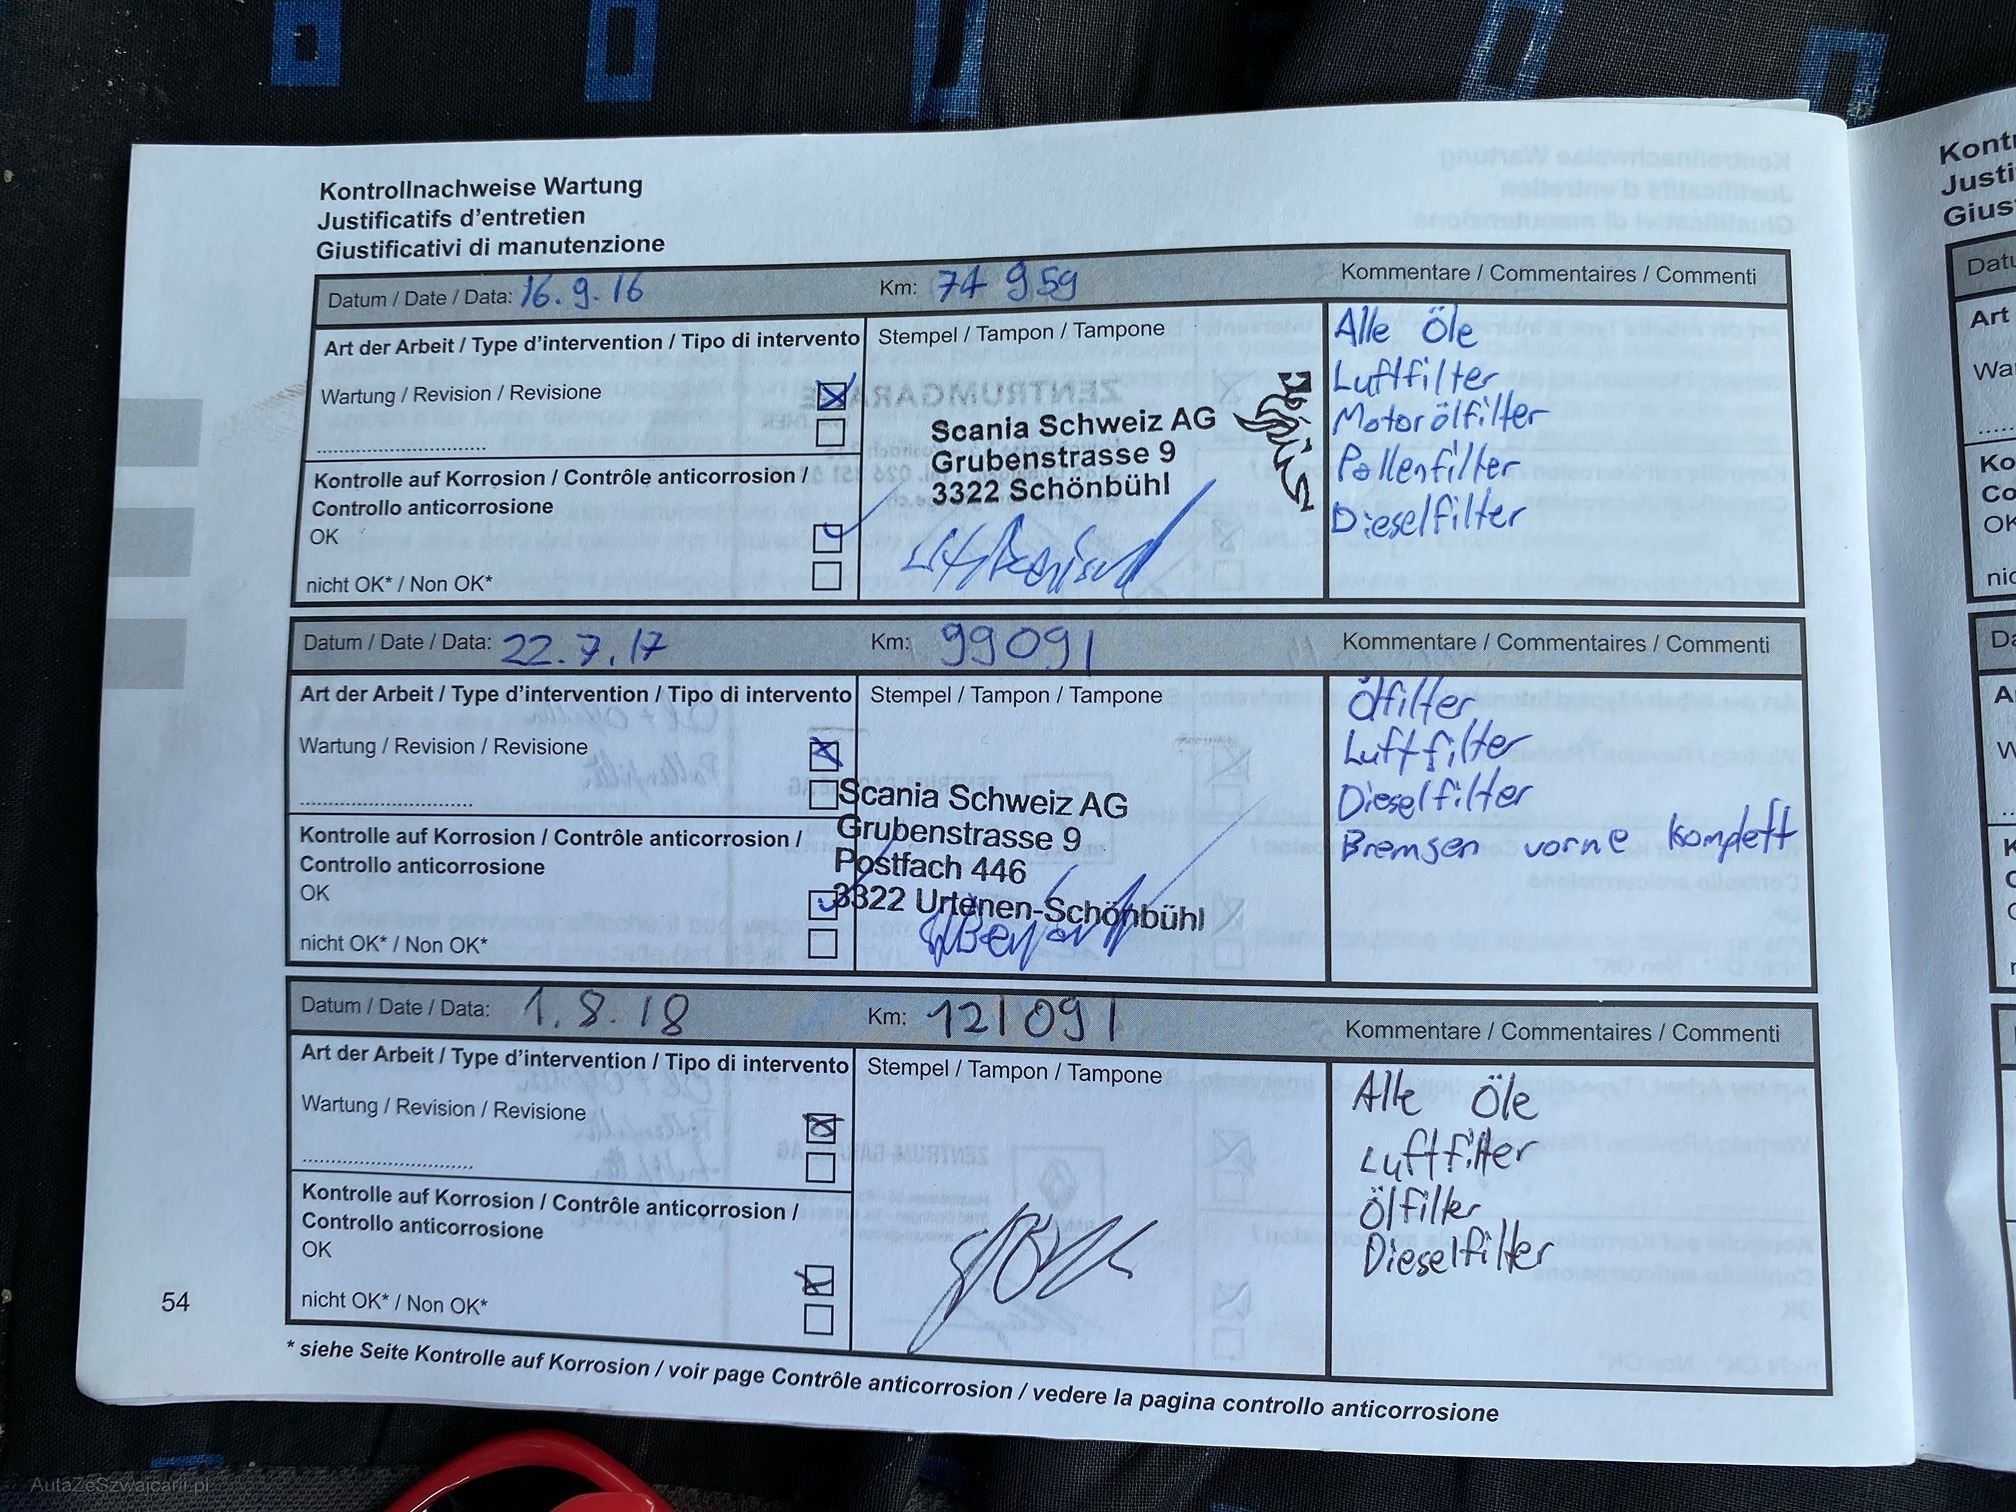 Kontrollnachweise Wartung
Justificatifs d'entretien
Giustificativi di manutenzione
Datum / Date / Data: 16.9.16
Km: 74 959
Kommentare / Commentaires / Commenti
Art der Arbeit / Type d'intervention / Tipo di intervento
Wartung / Revision / Revisione
Kontrolle auf Korrosion / Contrôle anticorrosion /
Controllo anticorrosione
OK
nicht OK* / Non OK*
Stempel / Tampon / Tampone
Scania Schweiz AG
Grubenstrasse 9
3322 Schönbühl
Alle Öle
Luftfilter
Motorölfilter
Pollenfilter
Dieselfilter
Datum / Date / Data: 22.7.17
Km: 99091
Kommentare / Commentaires / Commenti
Art der Arbeit / Type d'intervention / Tipo di intervento
Wartung / Revision / Revisione
Kontrolle auf Korrosion / Contrôle anticorrosion /
Controllo anticorrosione
OK
nicht OK* / Non OK*
Stempel / Tampon / Tampone
Scania Schweiz AG
Grubenstrasse 9
Postfach 446
3322 Urtenen-Schönbühl
Ölfilter
Luftfilter
Dieselfilter
Bremsen vorne komplett
Datum / Date / Data: 1.8.18
Km: 121091
Kommentare / Commentaires / Commenti
Art der Arbeit / Type d'intervention / Tipo di intervento
Wartung / Revision / Revisione
Kontrolle auf Korrosion / Contrôle anticorrosion /
Controllo anticorrosione
OK
nicht OK* / Non OK*
Stempel / Tampon / Tampone
Alle Öle
Luftfilter
Ölfilter
Dieselfilter
54
* siehe Seite Kontrolle auf Korrosion / voir page Contrôle anticorrosion / vedere la pagina controllo anticorrosione
AutaZeSzwajcarii.pl